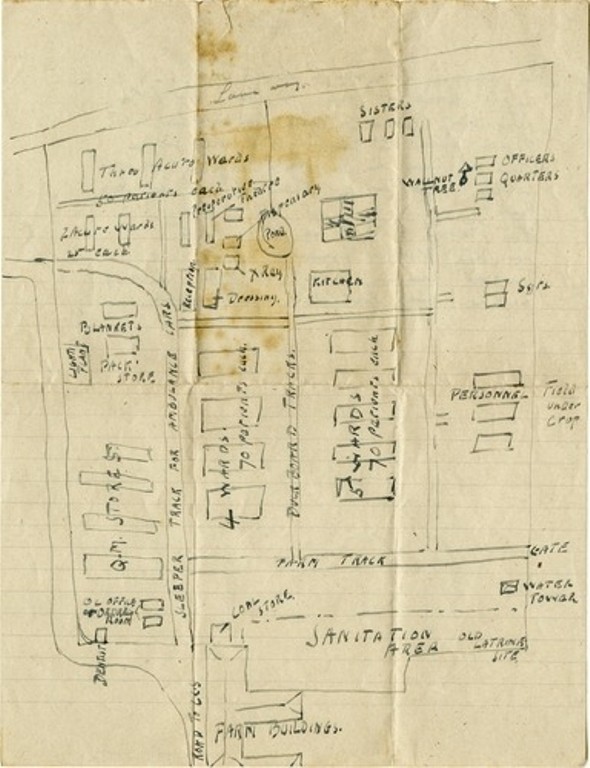 SISTERS
Three Acute Wards
50 patients each
WALNUT
TREE
OFFICERS
QUARTERS
Preoperative
Theatre
Dispensary
2 Acute Wards
25 each
Pond
X Ray
Reception
Dressing.
KITCHEN
SGTS
BLANKETS
PACK
STORE
LIGHT
PLANT
SLEEPER TRACK FOR AMBULANCE CARS
4 WARDS.
70 Patients each.
DUCKBOARD TRACKS.
5 WARDS
70 Patients each
PERSONNEL
Field
under
crop
Q.M. STORES.
FARM TRACK
GATE
WATER
TOWER
OFFICE
ROOM
COAL
STORE
SANITATION
AREA
OLD
LATRINE
SITE
DENTIST
ROAD TO CCS
FARM BUILDINGS.